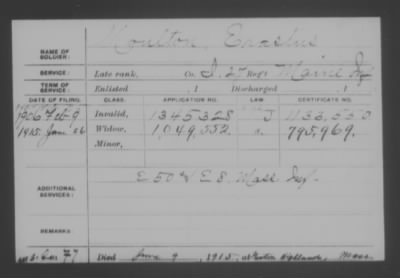 NAME OF SOLDIER: Moulton, Erastus
SERVICE: Late rank, Co. I, 27 Reg't Maine Inf
TERM OF SERVICE: Enlisted , 1 Discharged , 1
DATE OF FILING. CLASS. APPLICATION NO. LAW. CERTIFICATE NO.
1906 Feb 9 Invalid, 1345328 J
1915 June 26 Widow, 1,049,552 795,969.
Minor,
ADDITIONAL SERVICES: E 50 & E 8, Mass Inf.
REMARKS:
Died June 9, 1915, at Highlands, Mass.